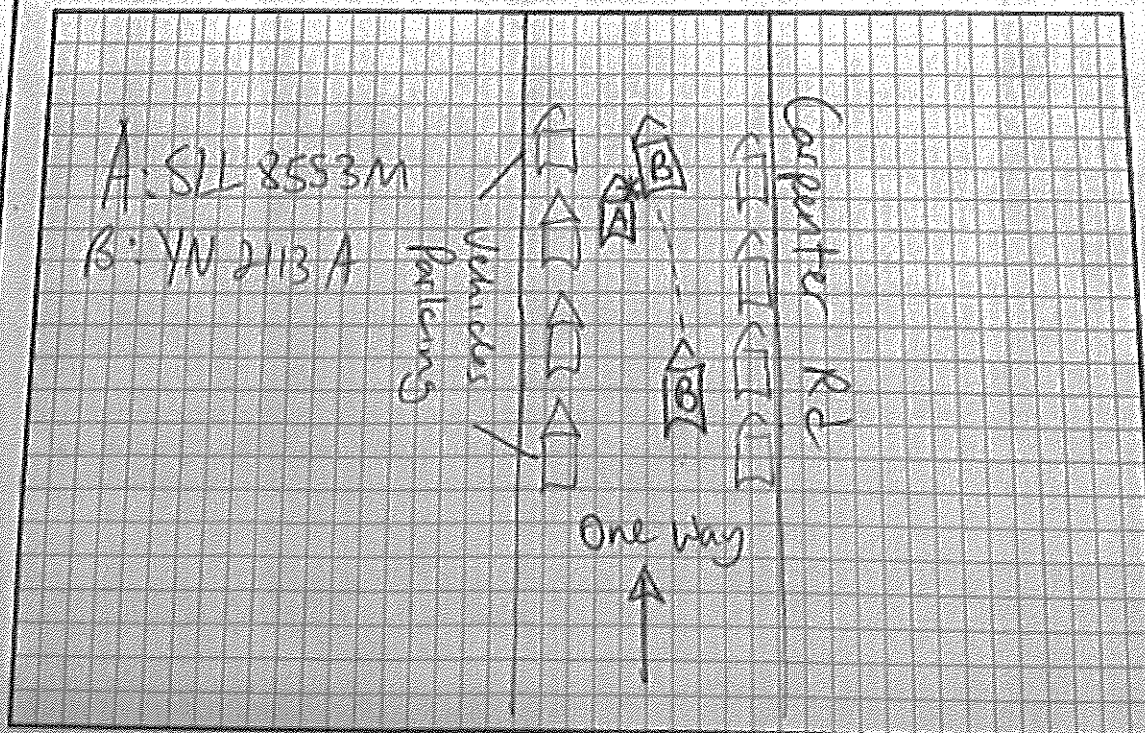 A: SLL 8553M
B: YN 2113 A
Vehicles
Parking
B
A
B
Carpenter Rd
One Way